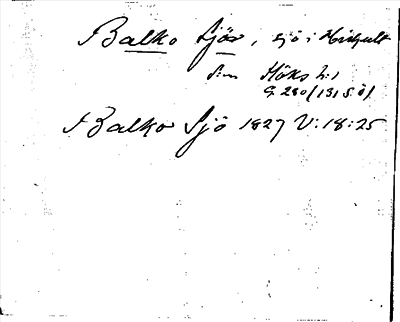 Balko Sjön, sjö i Hishult
s:n Höks h:d
G 280/1315 ö/
Balko Sjö 1827 V:18:25